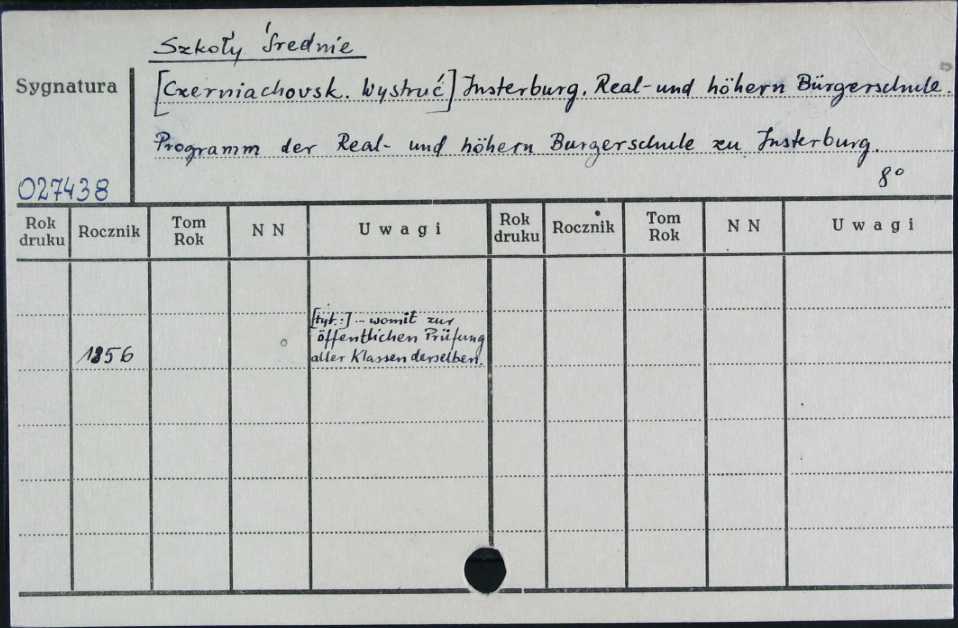 Szkoły Średnie
Sygnatura
[Czerniachovsk. Wystruć] Insterburg. Real- und höhern Bürgerschule.
Programm der Real- und höhern Burgerschule zu Insterburg.
8°
027438
Rok druku Rocznik Tom Rok NN Uwagi Rok druku Rocznik Tom Rok NN Uwagi
[tyt.:] - womit zur
öffentlichen Prüfung
1856 aller Klassen derselben.